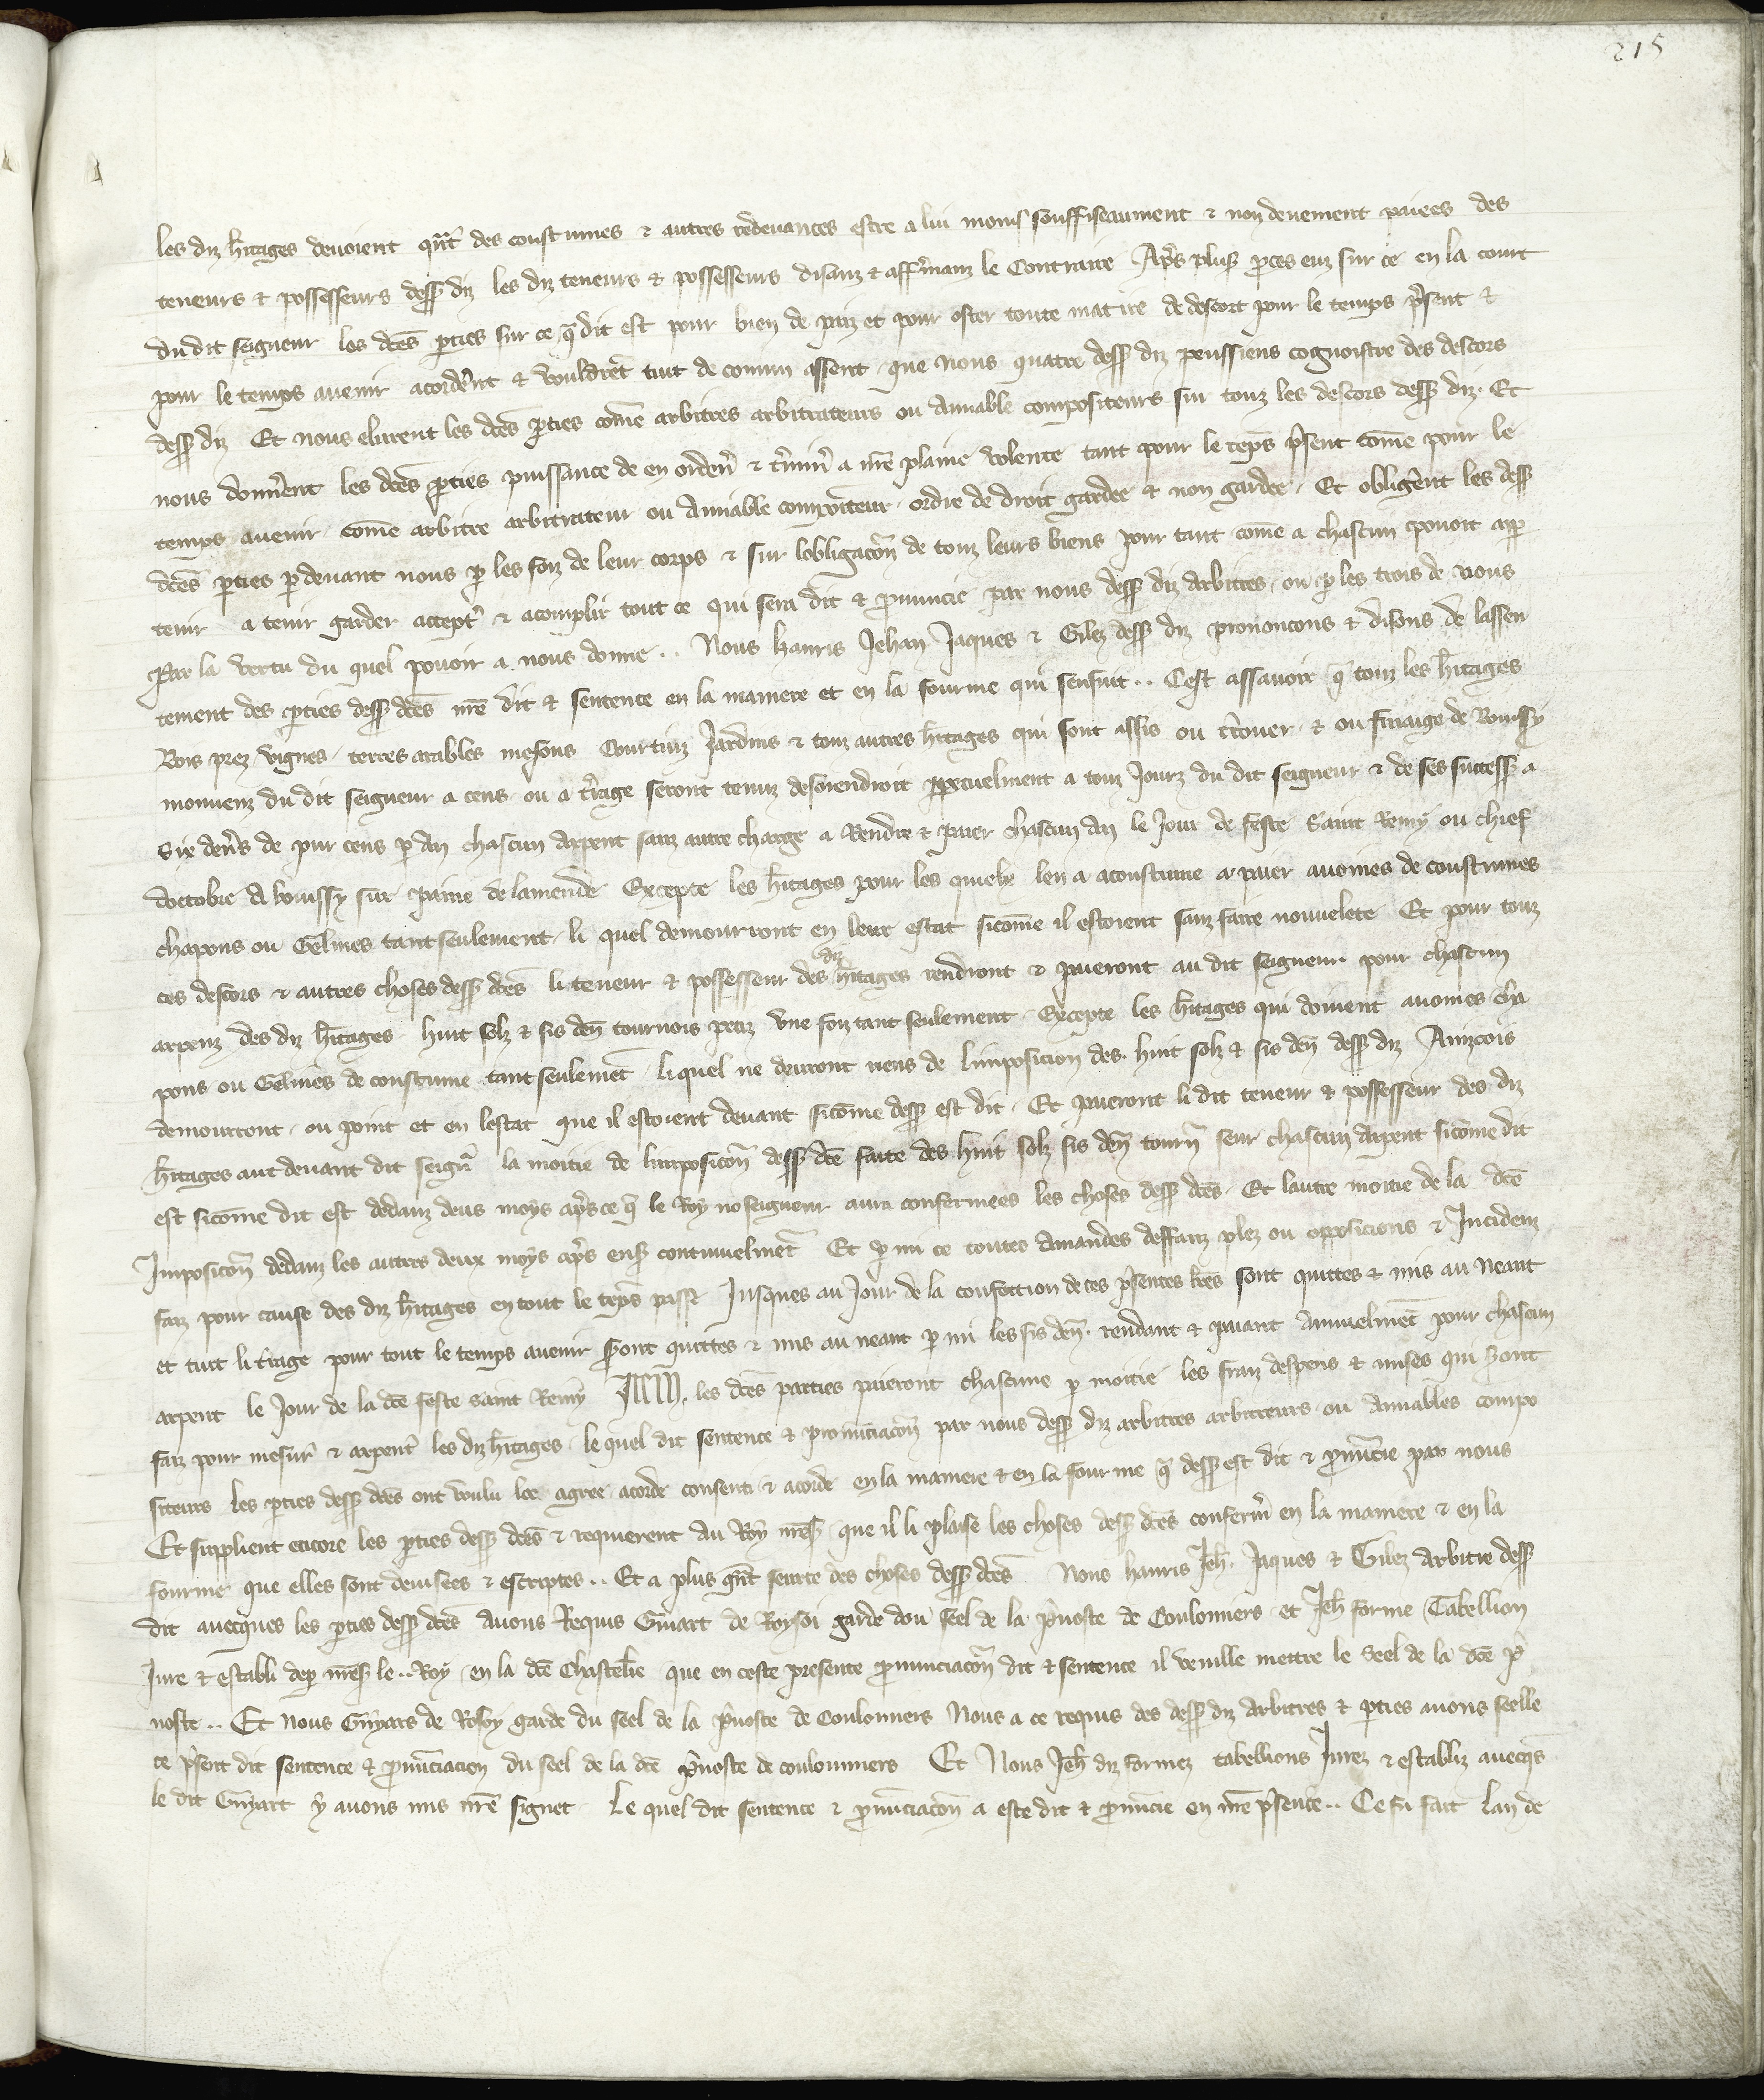 215
les diz h̃itages deuoient q̃nt des coustumes & autres redeuances estre a lui moins souffiseaument & non deuement paiees des
teneurs & possesseurs dess' diz les diz teneurs & possesseurs disanz & afferm̃anz le Contraire Ap̃s plus' p̃ces euz sur ce en la court
du dit seigneur les dc̃es p̃ties sur ce q̃ dit est pour bien de paiz et pour oster toute matire de descort pour le temps p̃sent &
pour le temps auenir acorder̃nt & vouldrẽt tuit de comun assent que nous quatre dess' diz peussiens cognoistre des descors
dess' diz Et nous elurent les dc̃es p̃ties com̃e arbitres arbitrateurs ou Amiable compositeurs sur touz les descors dess' diz. Et
nous donner̃ent les dc̃es p̃ties puissance de en ordeñ & t̃miñ a nr̃e plaine volente tant pour le tẽps p̃sent com̃e pour le
temps auenir com̃e arbitre arbitrateur ou Amiable compoiteur ordre de droit gardee & non gardee. Et obliger̃nt les dess'
dc̃es p̃ties p̱deuant nous p̱ les foiz de leur corps & sur lobligac̃on de touz leurs biens pour tant com̃e a chascun pouoit app̱
tenir a tenir garder accept̃ & acomplir tout ce qui sera dit & p̃nuncie par nous dess' diz Arbitres. ou p̱ les trois de nous
Par la vertu du quel pouoir a nous donne .. Nous hanris Jehan Jaques & Gilez dess' diz prononcons & disons de lassen
tement des p̃ties dess' dc̃es nr̃e dit & sentence en la maniere et en la fourme qui senssuit .. Cest assauoir q̃ touz les h̃itages
Bois prez vignes terres arables mesons Courtiuz Jardins & touz autres h̃itages qui sont assis ou t̃rouer & ou finaige de Bouissy
mouuenz du dit seigneur a cens ou a t̃rage seront tenuz desorendroit p̱petuelment a touz Jourz du dit seigneur & de ses success' a
Six den̄s de pur cens p̱ An chascun Arpent sanz autre charge a Rendre & paier chascun An le Jour de feste Saint Remy ou chief
doctobre A bouissy sur paine de lamende Excepte les h̃itages pour les quielx len a acoustume a paier auoines de coustumes
chapons ou Gelines tantseulement. li quel demourront en leur estat sicom̃e il estoient sanz faire nouuelete Et pour touz
ces descors & autres choses dess' dc̃es li teneur & possesseur des diz h̃itages rendront & paieront au dit seigneur pour chascun
arpenz des diz h̃itages huit solz & sis deñ tournois petiz vne foiz tant seulement. Excepte les h̃itages qui doiuent auoines cha
pons ou Gelines de coustume tantseulemẽt. liquel ne deuront riens de limposicion des. huit solz & sis deñ dess' diz Ainzcois
demourront. ou point et en lestat que il estoient deuant sicom̃e dess' est dit. Et paieront li dit teneur & possesseur des diz
h̃itages aut deuant dit seigñr la moitie de limposic̃on dess' dc̃e faite des huit solz sis deñ tourñ seur chascun Arpent sicom̃e dit
est sicom̃e dit est dedanz deus moys ap̃s ce q̃ le Roy noseigneur aura confermees les choses dess' dc̃es. Et lautre moitie de la dc̃e
Imposic̃on dedanz les autres deux moys ap̃s ens' continuelmẽt Et p̱ mi ce toutes Amandes deffauz plez ou opposicions & Incidenz
faiz pour cause des diz h̃itages en tout le tẽps passe Jusques au Jour de la confection de ces p̃sentes lr̃es sont quittes & mis au Neant
et tuit li t̃rage pour tout le temps auenir seront quittes & mis au neant p̱ mi les sis deñ. rendant & paiant Annuelmẽt pour chascun
arpent le Jour de la dc̃e feste Saint Remy Item. les dc̃es parties paieront chascune p̱ moitie les fraiz despens & mises qui sont
faiz pour mesur̃ & arpent̃ les diz h̃itages. le quel dit sentence & pronũciac̃on par nous dess' diz arbitres arbitreurs ou Amiables compo
siteurs les p̃ties dess' dc̃es ont voulu loe agree acorde consenti & acorde en la maniere & en la fourme q̃ dess' est dit & p̃nũcie par nous
Et supplient encore les p̃ties dess' dc̃es & requierent Au Roy nr̃es' que il li plaise les choses dess' dc̃es conferm̃ en la maniere & en la
fourme que elles sont deuisees & escriptes .. Et a plus g̃nt seurte des choses dess' dc̃es Nous hanris Jeh̃. Jaques & Gilez Arbitre dess'
dit auecques les p̃ties dess' dc̃es Auons Requis Guiart de Roysoi garde dou seel de la p̃uoste de Coulonmiers et Jeh̃ forme Tabellion
Jure & establi dep̱ nr̃es' le .. Roy en la dc̃e Chastelr̃ie que en ceste presente p̃nunciac̃on dit & sentence il veuille mettre le Seel de la dc̃e p̃
uoste .. Et nous Guyars de Rosoy garde du seel de la p̃uoste de Coulonmiers Nous a ce requis des dess' diz Arbitres & p̃ties auons seelle
ce p̃sent dit sentence & p̃nũciacion du seel de la dc̃e p̃uoste de coulonmiers Et Nous Jeh̃ diz formez tabellions Jurez & establiz auecq̃s
le dit Guyart y auons mis nr̃e signet Le quel dit sentence & p̃nũciac̃on a este dit & p̃nũcie en nr̃e p̃sence .. Ce fu fait Lan de